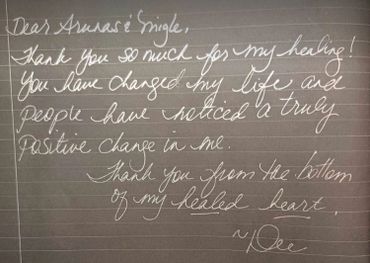 Dear Arunas & Migle,
Thank you so much for my healing!
You have changed my life and
people have noticed a truly
positive change in me.
Thank you from the bottom
of my healed heart.
~Dee